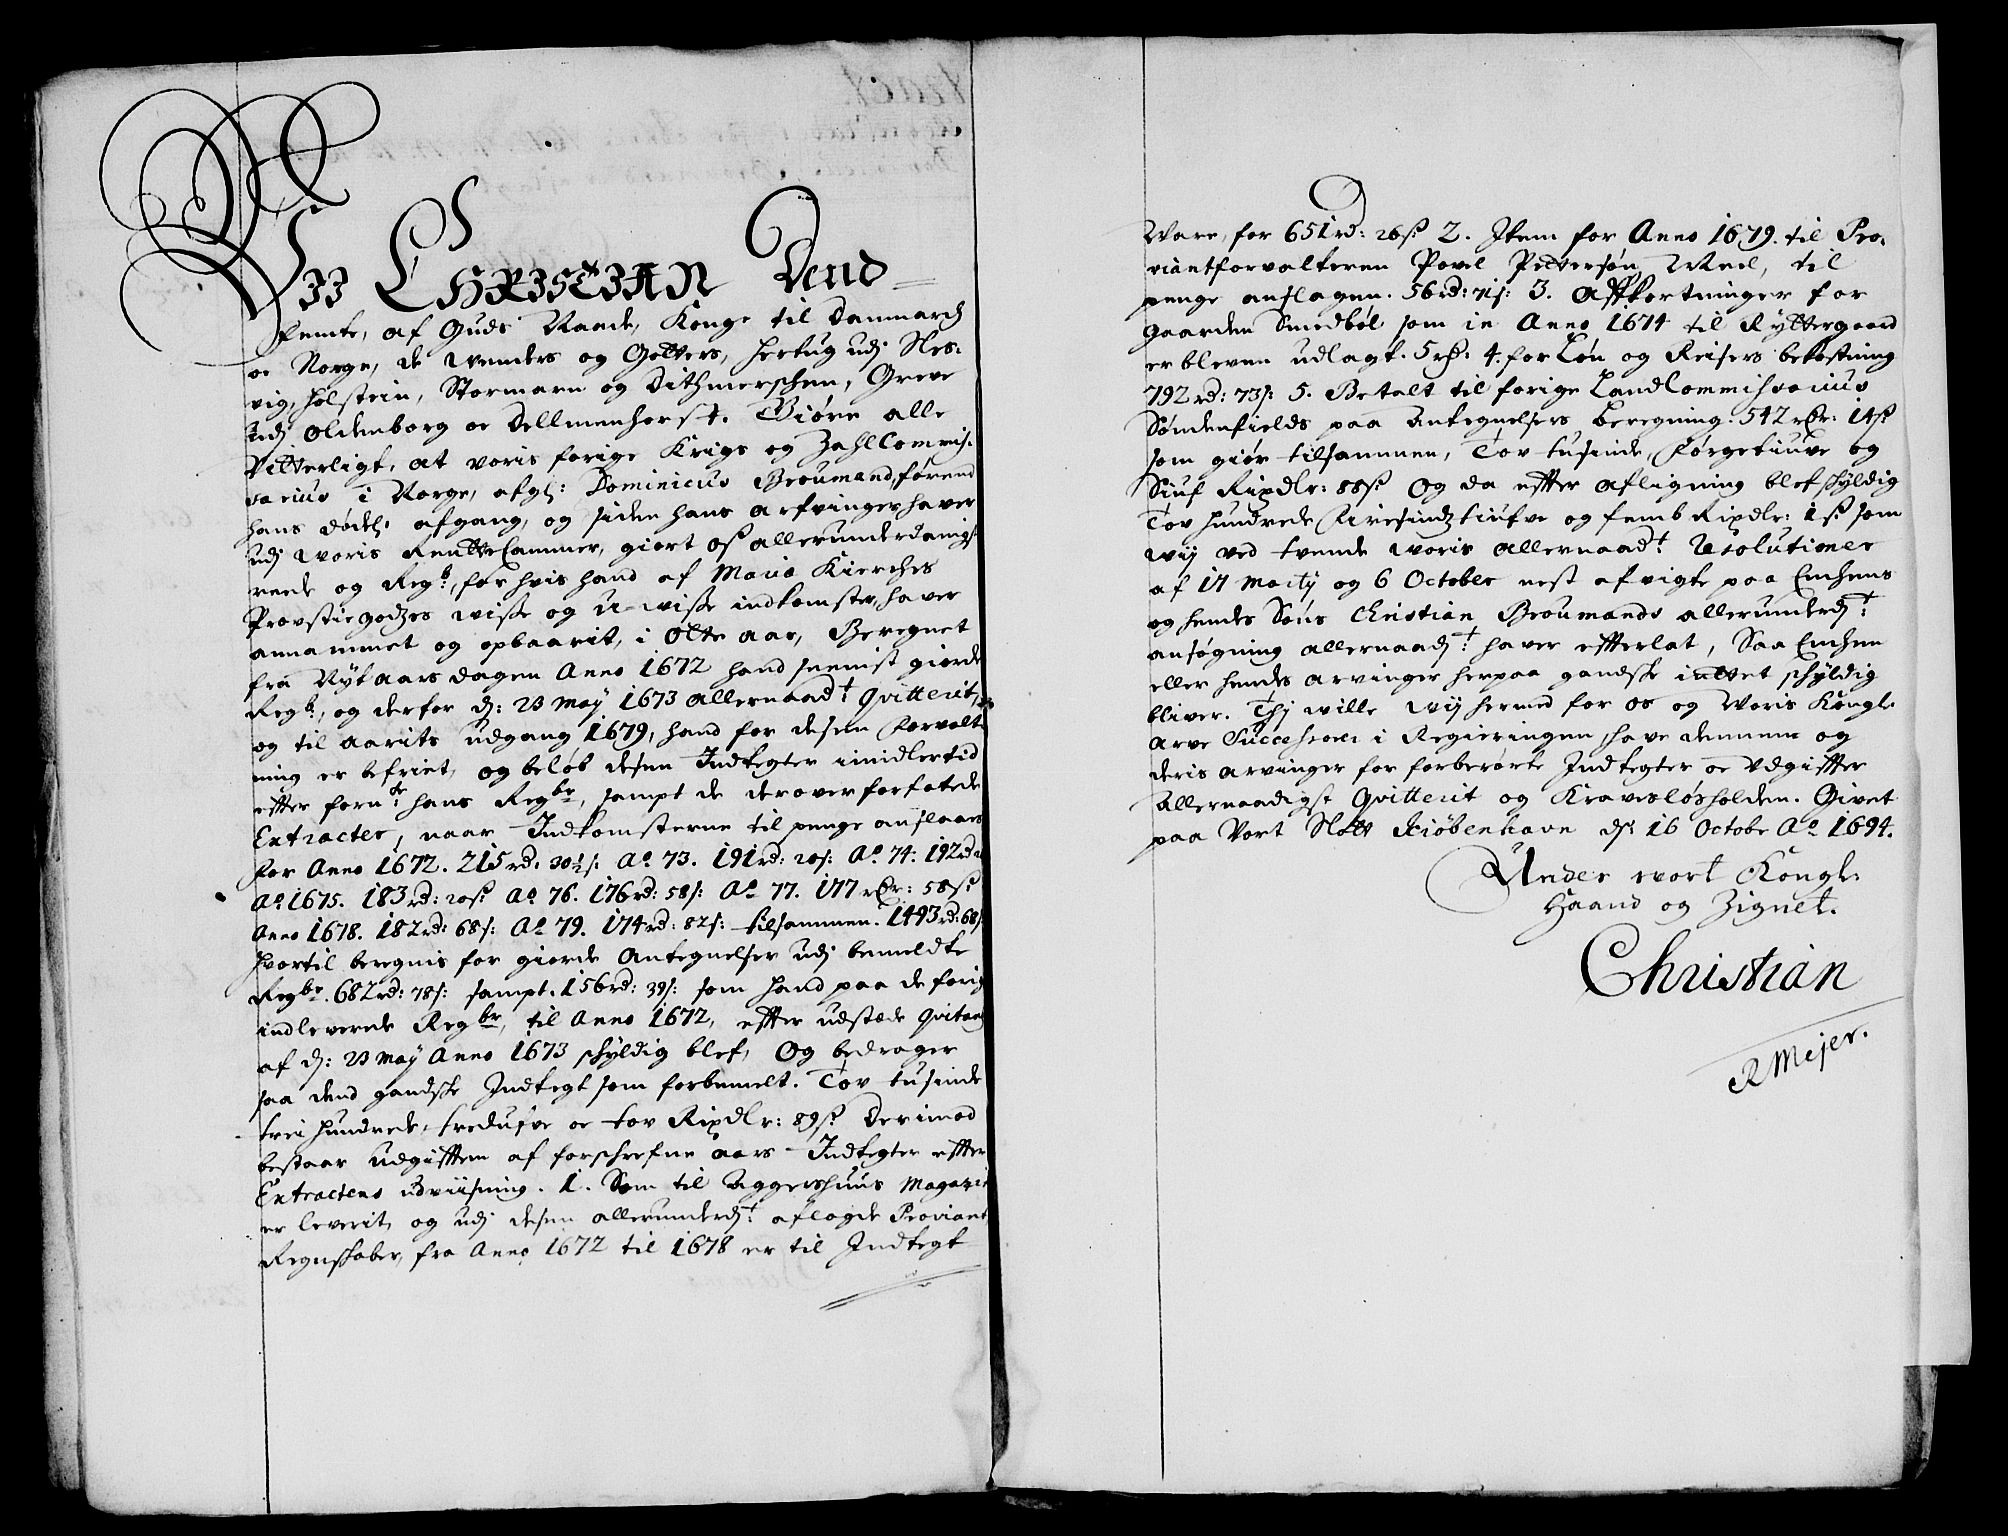 Vii CHRISTIAN Dend
femte, af Guds Naade, Konge til Danmarch
oc Norge, de Wenders og Gotters, Hertug udj Sles-
vig, Holstein, Stormarn og Dithmerschen, Greve
udj Oldenborg oc Dellmenhorst. Giøre alle
Vitterligt, at voris forige Krigs og ZahlCommis-
sarius i Norge, afg: Dominicus Broumand, førend
hans dødel: afgang, og siden hans arfvinger haver
udj Woris RentteCammer, giort oss allerunderdanigst
rede og Regb:, for hvis hand af Maria Kierches
Provstie godzes wisse og u-wisse indkomster, haver
annammet og opbaarit, i Otte aar, Beregnet
fra Nytaarsdagen Anno 1672 hand seenist giorde
Regb:, og derfor dj: 23 May 1673 allernaadt: Qvitterit,
og til Aarits udgang 1679, hand for desen forvalt-
ning er befriet, og beløb desen Indtegter imidlertid
effter fornde: hans Regbr, sampt de derover forfatede
Extracter, naar Indkomsterne til penge anslaaes
for Anno 1672. 215 rd: 30½ s: Ao 73. 191 rd: 20 s: Ao 74: 192 rd
Ao 1675. 183 rd: 20 s: Ao 76. 176 rd: 58 s: Ao 77. 177 rdr: 58 s:
Anno 1678. 182 rd: 68 s: Ao 79. 174 rd: 82 s: tilsammen. 1493 rd: 68 s:
hvortil beregnis for giorde Antegnelser udj bemeldte
Regbr. 682 rd: 78 s: sampt. 156 rd: 39 s: som hand paa de forig
indleverede Regbr, til Anno 1672, effter udstæde Qvitantz
af dj: 23 May Anno 1673 schyldig blef, Og bedrager
saa dend gandske Indtegt som forbemelt. Tov tusinde
trei hundrede, tredufve oc tov Rixdlr: 89 s: Derimod
bestaar udgifften af forschrefne aars Indtegter effter
Extractens udviisning. 1. Som til Aggershuus Magazin
er leverit, og udj desen allerunderdt: aflagde Proviant
Regnskaber, fra Anno 1672 til 1678 er til Indtegt
Ware, for 651 rd: 26 s: 2. Item for Anno 1679. til Pro-
viantforvalteren Povel Pettersøn Meel, til
penge anslagen. 56 rd: 71 s: 3. Affkortninger for
gaarden Smedbøl som in Anno 1674 til Ryttergaard
er bleven udlagt. 5 rd: 4. for Løn og Reisers bekostning
792 rd: 73 s: 5. Betalt til forige LandCommissarius
Søndenfields paa Antegnelsers Beregning. 542 rdr: 14 s:
som giør tilsammen, Tov tusinde, førgetiuve og
Siuf Rixdlr: 88 s: Og da effter afligning blef schyldig
Tov hundrede firesindztiufve og femb Rixdlr: 1 s: som
wij ved tvende Woris allernaadt: Resolutioner
af 17 Martij og 6 October nest afvigte paa Enchens
og hendes Søns Christian Broumands allerunderdt:
ansøgning allernaadt: haver efterlat, Saa Enchen
eller hendes arvinger herpaa gandske inttet schyldig
bliver. Thj wille Wij hermed for os og Woris Kongl:
Arve Successorer i Regieringen, have dennem og
deris arvinger for forberørte Indtegter oc Udgiffter
Allernaadigst Qvitterit og Kravesløsholden. Givet
paa Vort Slott Kiøbenhavn dj: 16 Octobr Ao 1694.
Under wort Kongl:
Haand og Zignet.
Christian
R Mejer.